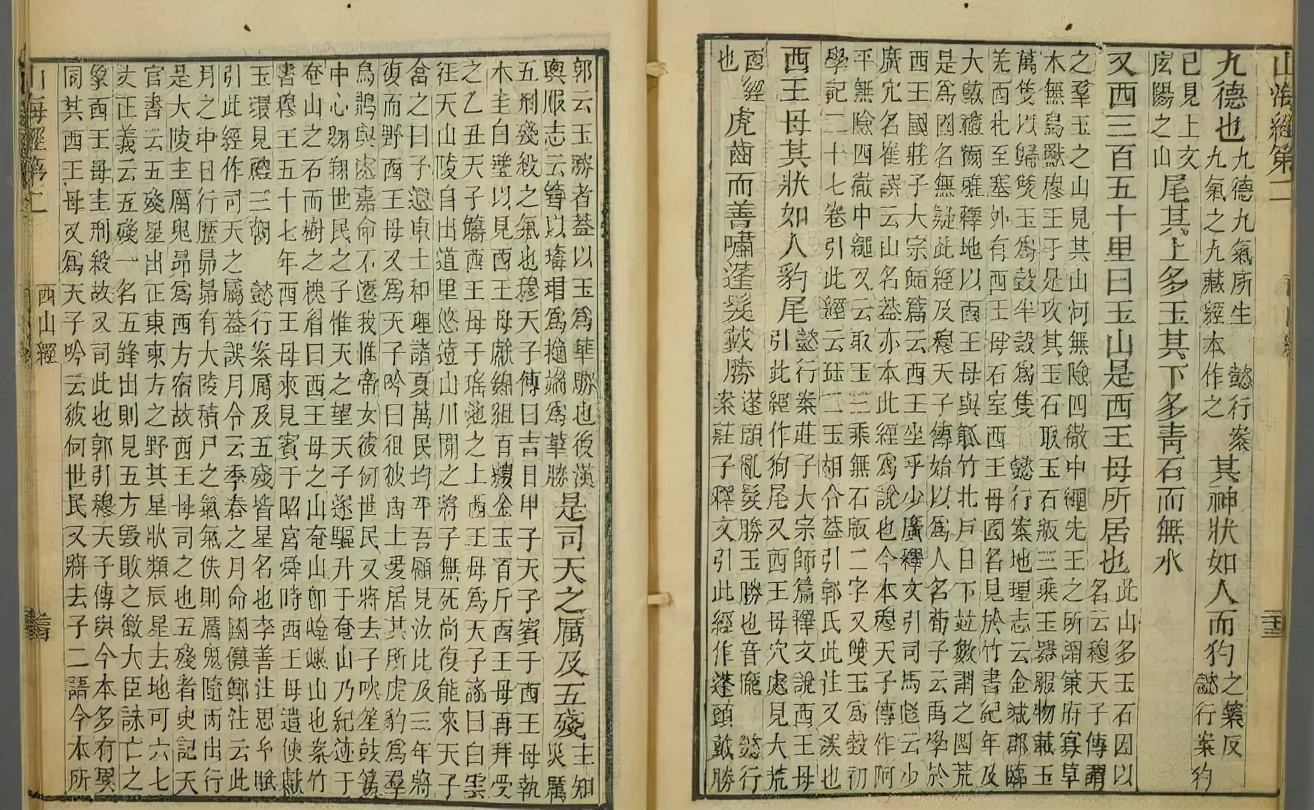 山海經第二
九德也九德九氣所生　懿行案九氣之九藏經本作之其神狀如人而犳之藥反懿行案犳
已見上文㡿陽之山尾其上多玉其下多青石而無水
又西三百五十里曰玉山是西王母所居也此山多玉石因以名云穆天子傳謂
之羣玉之山見其山河無險四徹中繩先王之所謂策府寡草
木無鳥獸穆王于是攻其玉石取玉石版三乘玉器服物載玉
萬隻以歸雙玉爲瑴半瑴爲隻　懿行案地理志云金城郡臨
羌西北至塞外有西王母石室西王母國名見於竹書紀年及
大戴禮爾雅釋地以西王母與觚竹北戶日下竝數謂之四荒
是爲國名無疑此經及穆天子傳始以爲人名荀子云禹學於
西王國莊子大宗師篇云西王母坐乎少廣釋文引司馬彪云少
廣穴名崔譔云山名葢亦本此經爲說也今本穆天子傳作阿
平無險四徹中繩又云取玉三乘無石版二字又雙玉爲瑴初
學記二十七卷引此經云珏二玉胡介葢引郭氏此注又誤也
西王母其狀如人豹尾懿行案莊子大宗師篇釋文說西王母引此經作狗尾又西王母穴處見大荒
西經也虎齒而善嘯蓬髮戴勝蓬頭亂髮勝玉勝也音龐　懿行案莊子釋文引此經作蓬頭戴勝
郭云玉勝者葢以玉爲華勝也後漢輿服志云簪以瑇瑁爲擿端爲華勝是司天之厲及五殘主知災厲
五刑殘殺之氣也穆天子傳曰吉日甲子天子賓于西王母執
木圭白璧以見西王母獻錦組百縷金玉百斤西王母再拜受
之乙丑天子觴西王母于瑤池之上西王母爲天子謠曰白雲
在天山陵自出道里悠遠山川閒之將子無死尚復能來天子
畣之曰予還東土和理諸夏萬民均平吾顧見汝比及三年將
復而野西王母又爲天子吟曰徂彼西土爰居其所虎豹爲羣
鳥鵲與處嘉命不遷我惟帝女彼何世民又將去子吹笙鼓簧
中心翺翔世民之子惟天之望天子遂驅升于奄山乃紀迹于
奄山之石而樹之槐眉曰西王母之山奄山卽崦嵫山也案竹
書穆王五十七年西王母來見賓于昭宮舜時西王母遣使獻
玉環見禮三朝　懿行案厲及五殘皆星名也李善注思賦
引此經作司天之厲葢誤月令云季春之月命國儺鄭注云此
月之中日行歷昴昴有大陵積尸之氣氣佚則厲鬼隨而出行
是大陵主厲鬼昴爲西方宿故西王母司之也五殘者史記天
官書云五殘星出正東東方之野其星狀類辰星去地可六七
丈正義云五殘一名五鋒出則見五方毀敗之徵大臣誅亡之
象西王母主刑殺故又司此也郭引穆天子傳與今本多有異
同其西王母又爲天子吟云彼何世民又將去子二語今本所
山海經第二　西山經